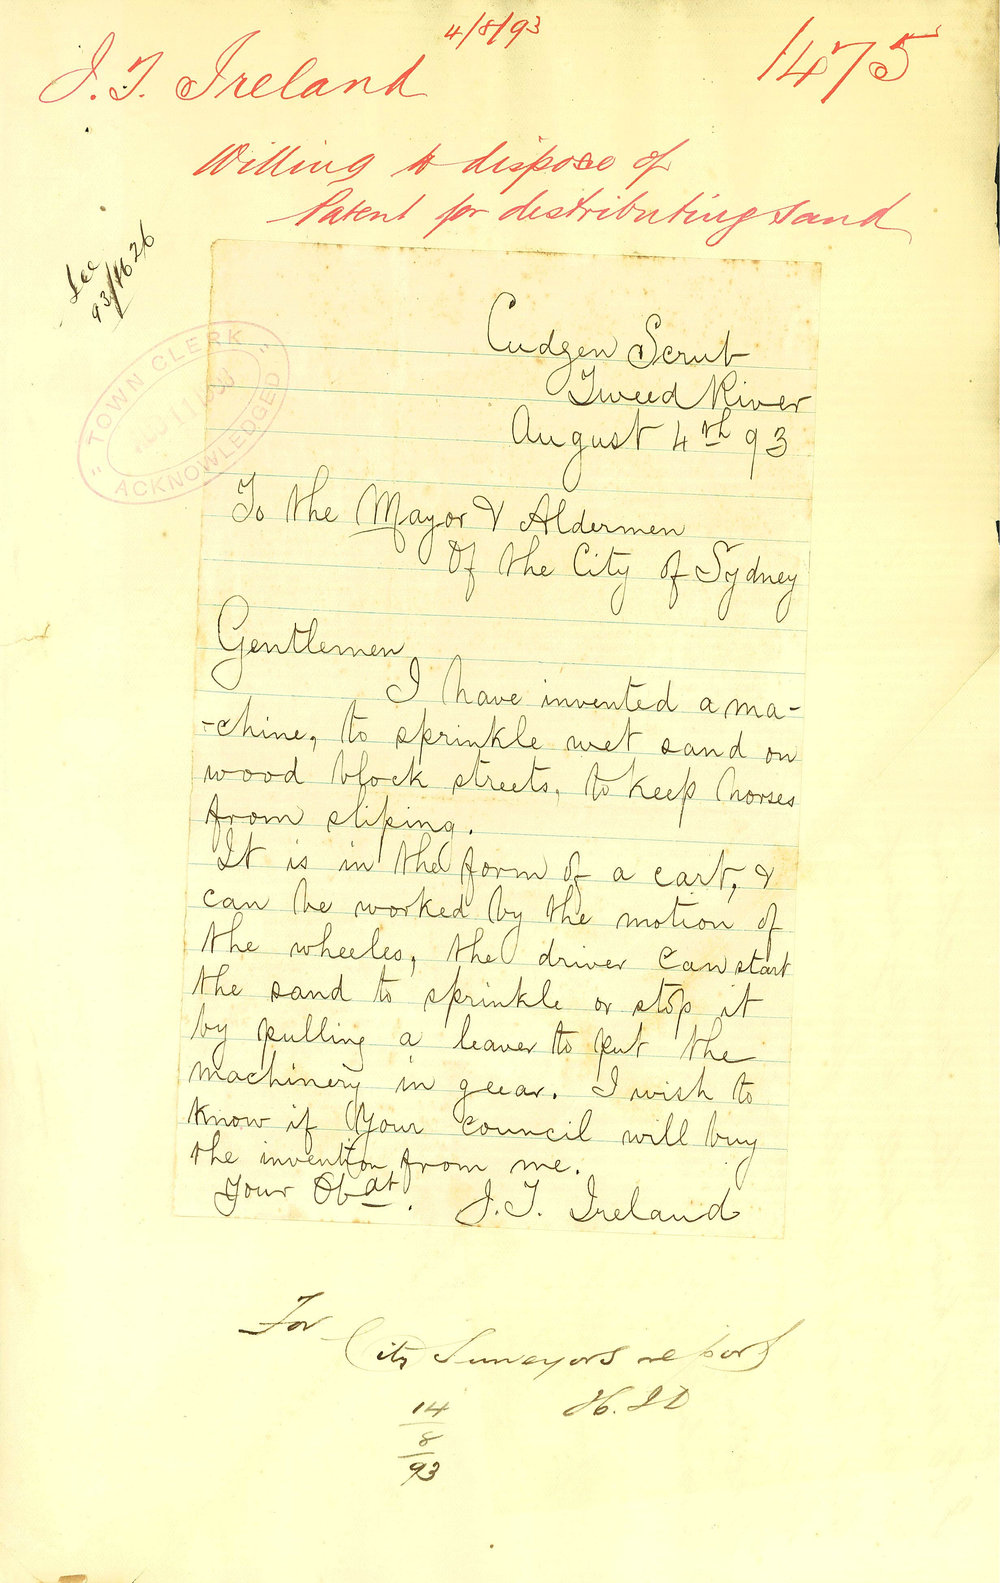 4/8/93
J. T. Ireland
1475
Willing to dispose of
Patent for distributing sand
See
93/1626
"TOWN CLERK"
ACKNOWLEDGED
Cudgen Scrub
Tweed River
August 4th 93
To the Mayor & Aldermen
Of the City of Sydney
Gentlemen
I have invented a ma-
-chine, to sprinkle wet sand on
wood block streets, to keep horses
from sliping.
It is in the form of a cart, &
can be worked by the motion of
the wheeles, the driver can start
the sand to sprinkle or stop it
by pulling a leaver to put the
machinery in geear. I wish to
know if your council will buy
the invention from me.
Your Obdt. J. T. Ireland
For
City Surveyors report
14
8
93